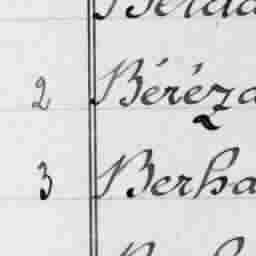 2 Béréza
3 Berha